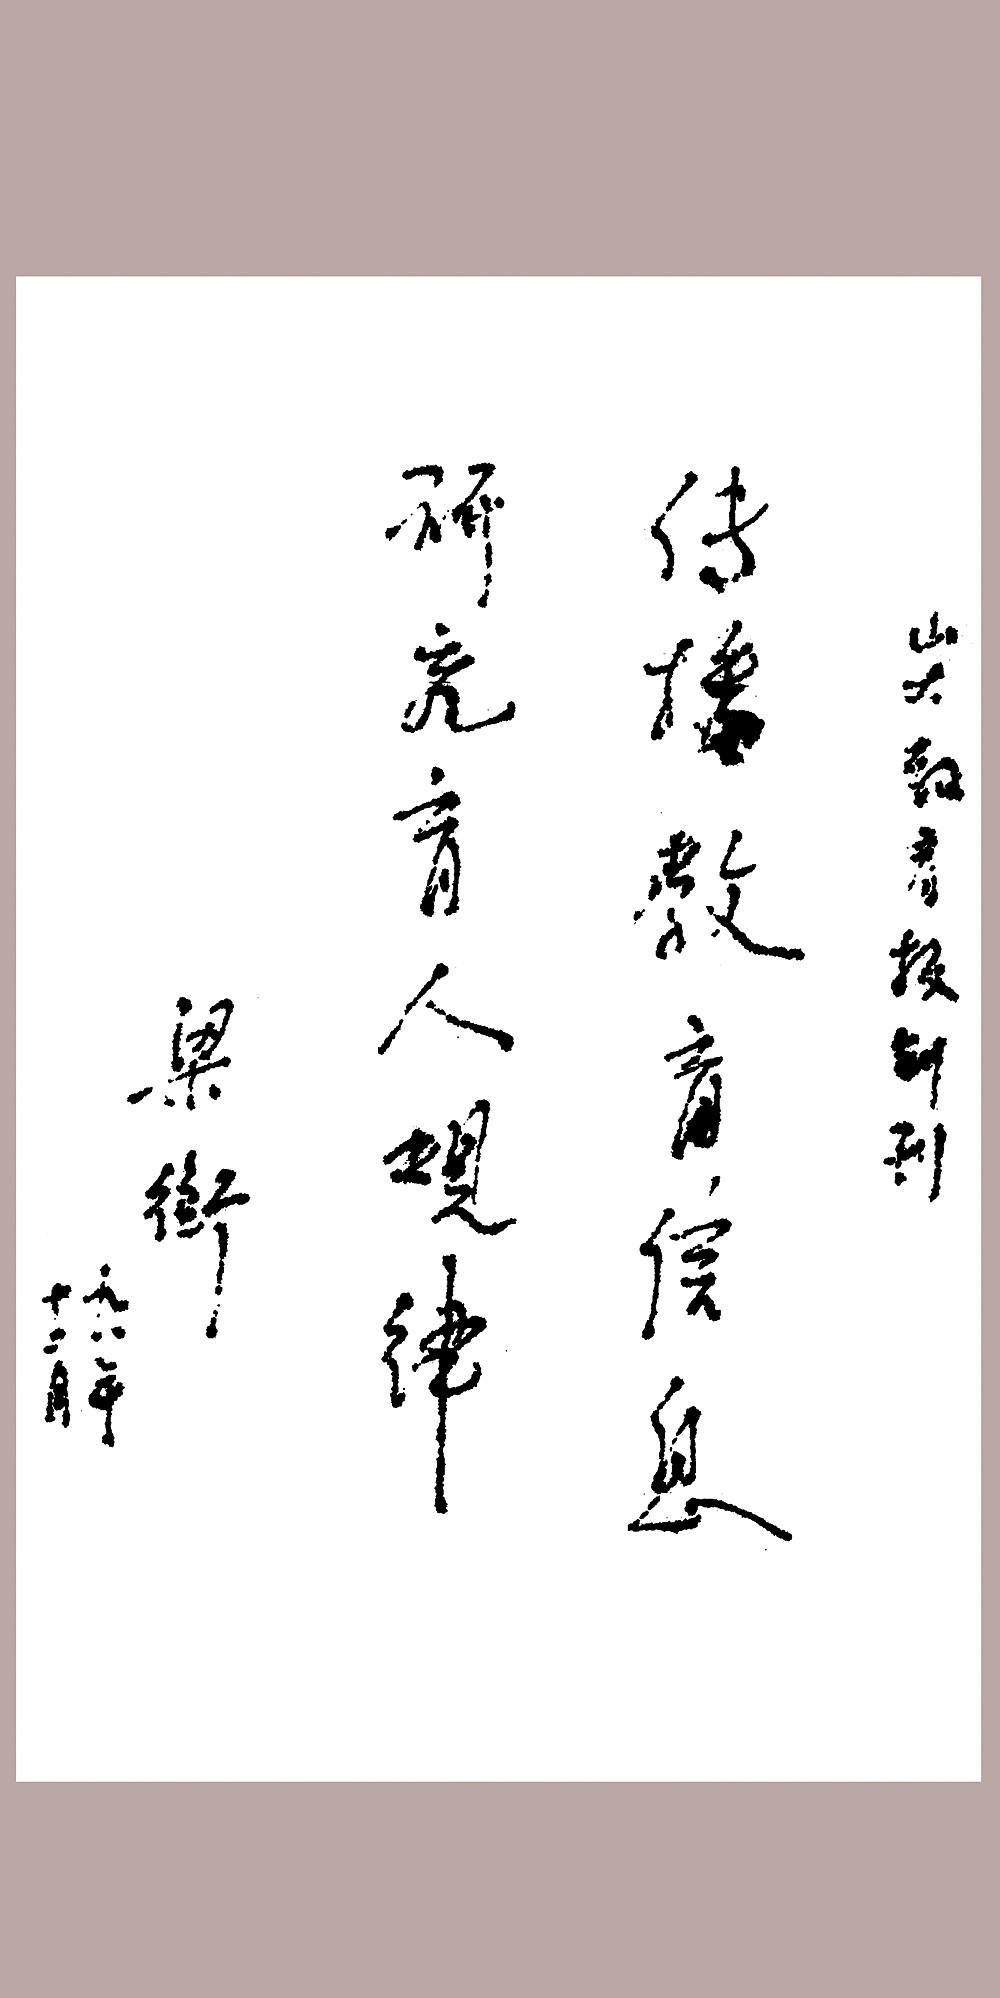 山大教育报创刊
传播教育信息
研究育人规律
梁衡
九八年
十二月